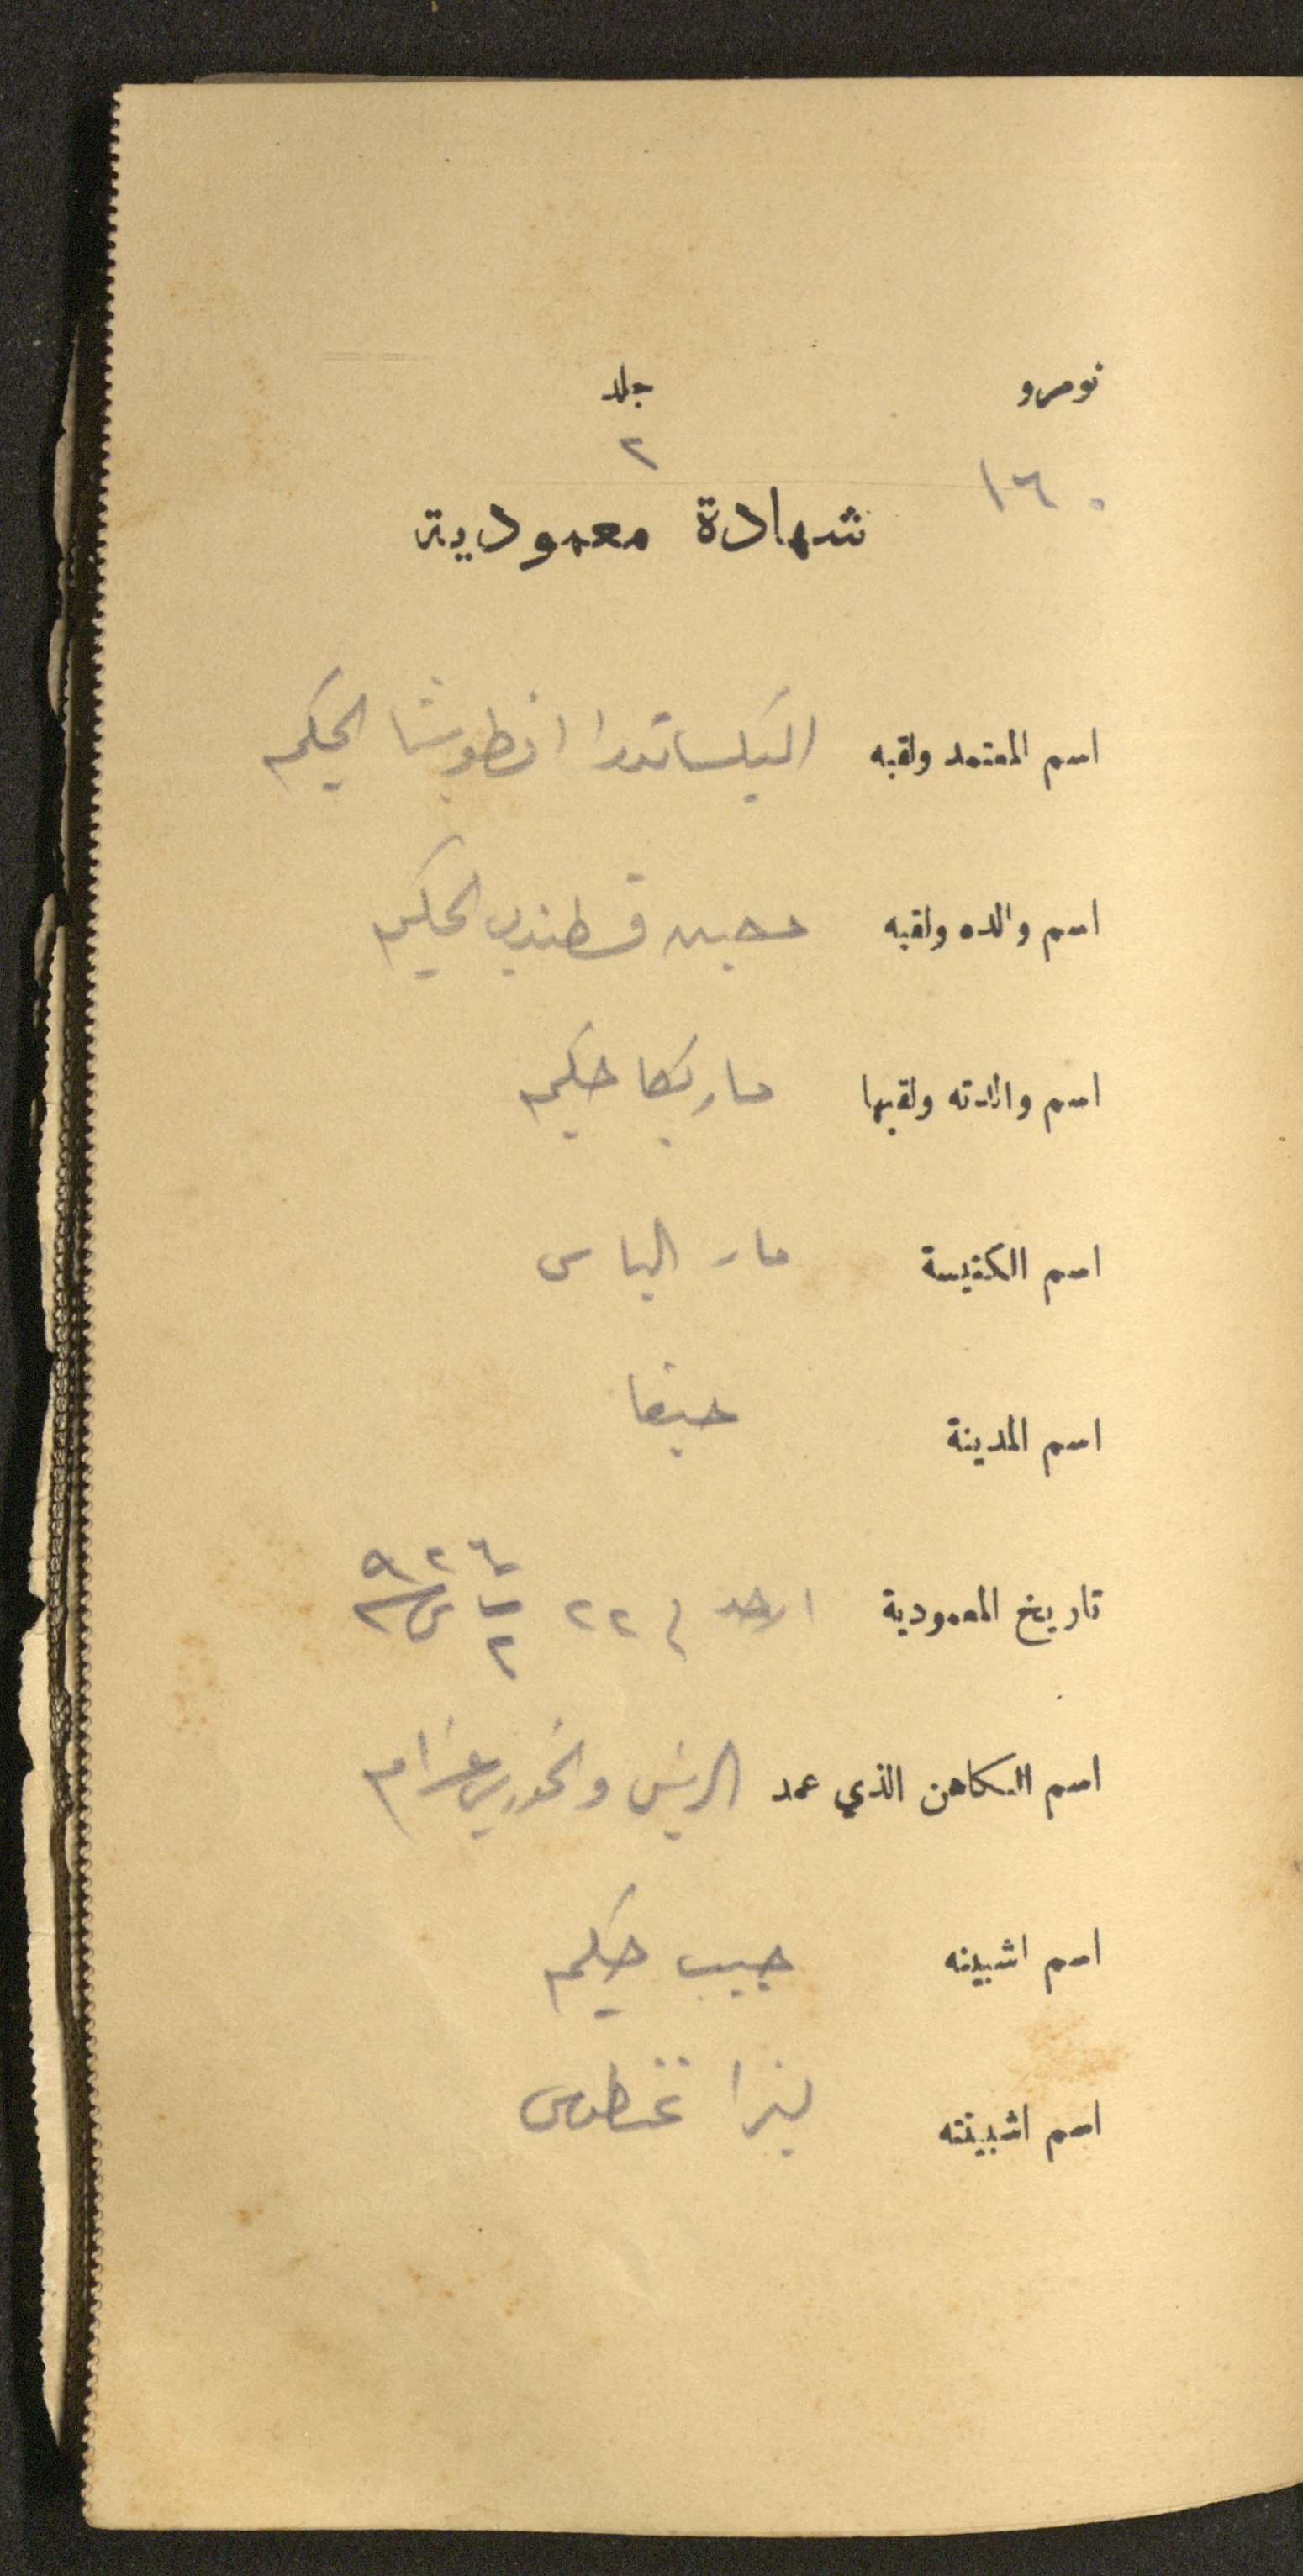 نومرو جلد
١٦٠ ٢
شهادة معمودية
اسم المعتمد ولقبه اليكساندرا انطونيتا الحكيم
اسم والده ولقبه قسطندي الحكيم
اسم والدته ولقبها ماريكا حكيم
اسم الكنيسة مار الياس
اسم المدينة حيفا
تاريخ المعمودية الاحد في ٢٢ شباط ٢ سنة ٩٢٦
اسم الكاهن الذي عمد الريس والخوري عزام
اسم اشبينه حبيب حكيم
اسم اشبينته ليزا غطاس